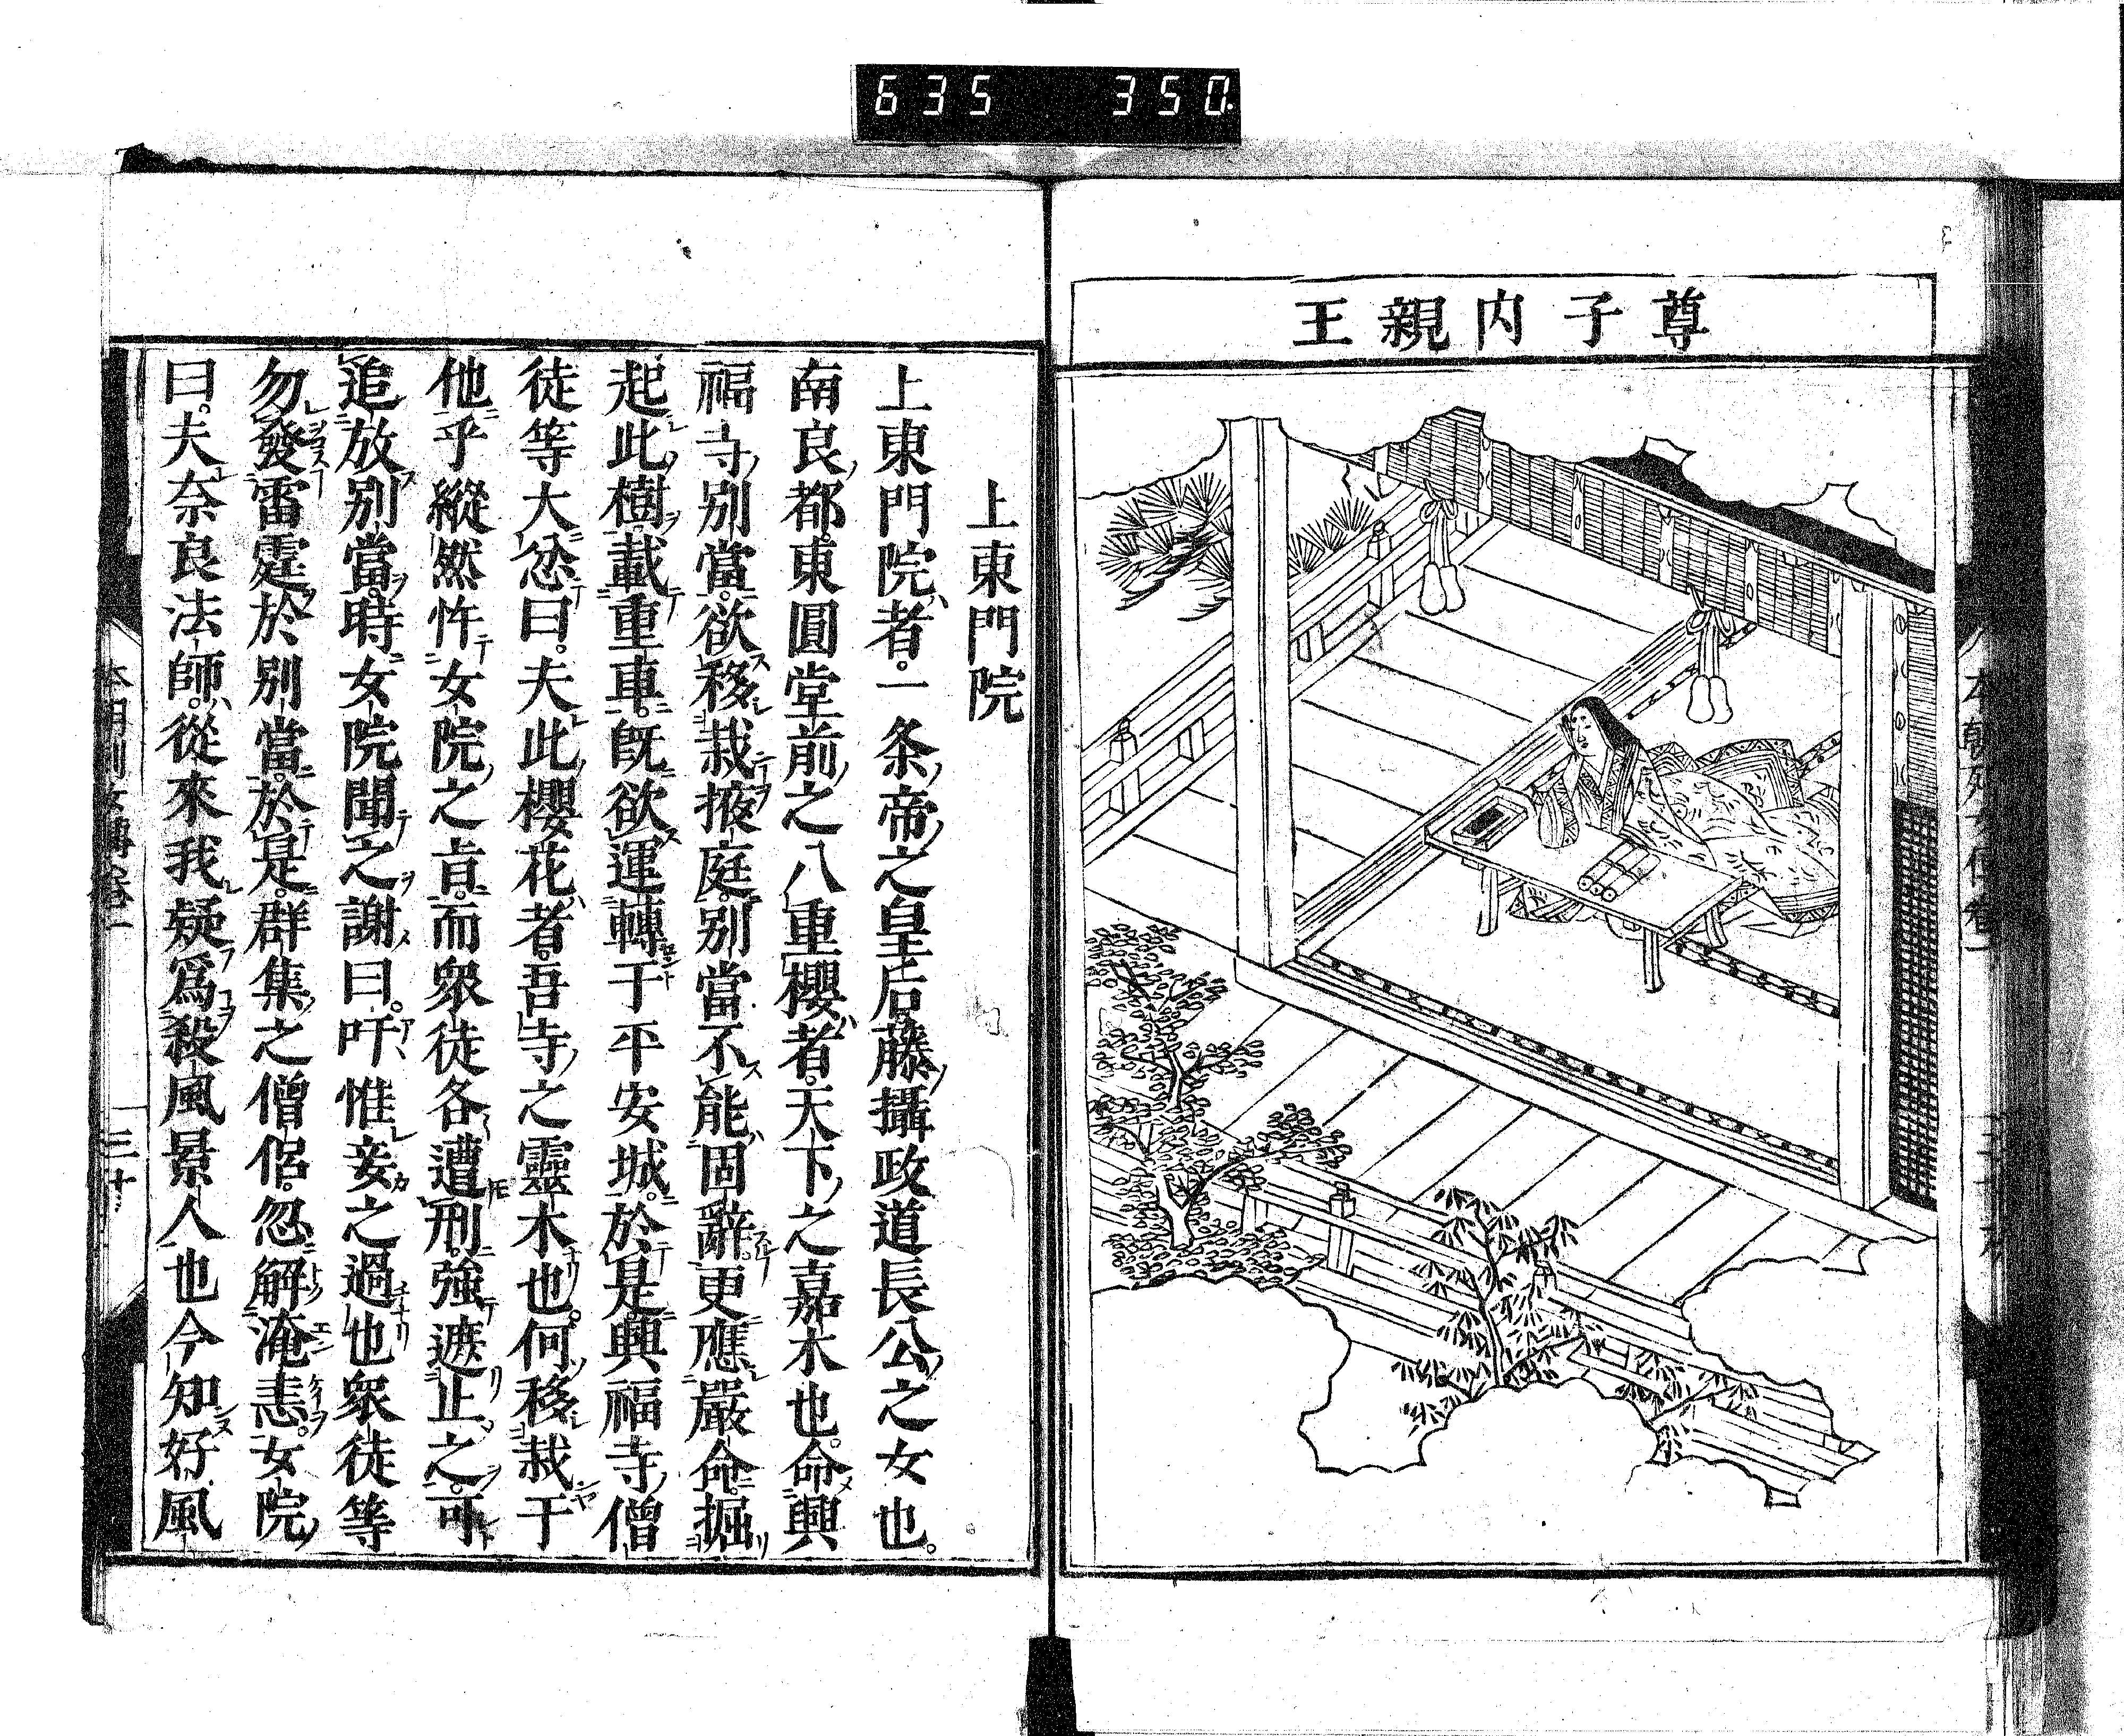 635 350.
尊子内親王
上東門院
上東門院者。一条帝之皇后。藤攝政道長公之女也。
南良都。東圓堂前之八重櫻者。天下之嘉木也。命興
福寺別當。欲移栽掖庭。別當不能固辭。更應嚴命。掘
起此樹。載重車。既欲運轉于平安城。於是興福寺僧
徒等大忿曰。夫此櫻花者。吾寺之靈木也。何移栽于
他乎。縱然忤女院之旨。而衆徒各遭刑。強遮止之。可
追放別當。時女院聞之謝曰。吁惟妾之過也。衆徒等
勿發雷霆於別當。於是。群集之僧侶。忽解淹恚。女院
曰。夫奈良法師。從來我疑爲殺風景人也。今知好風
本朝列女傳卷一 三十